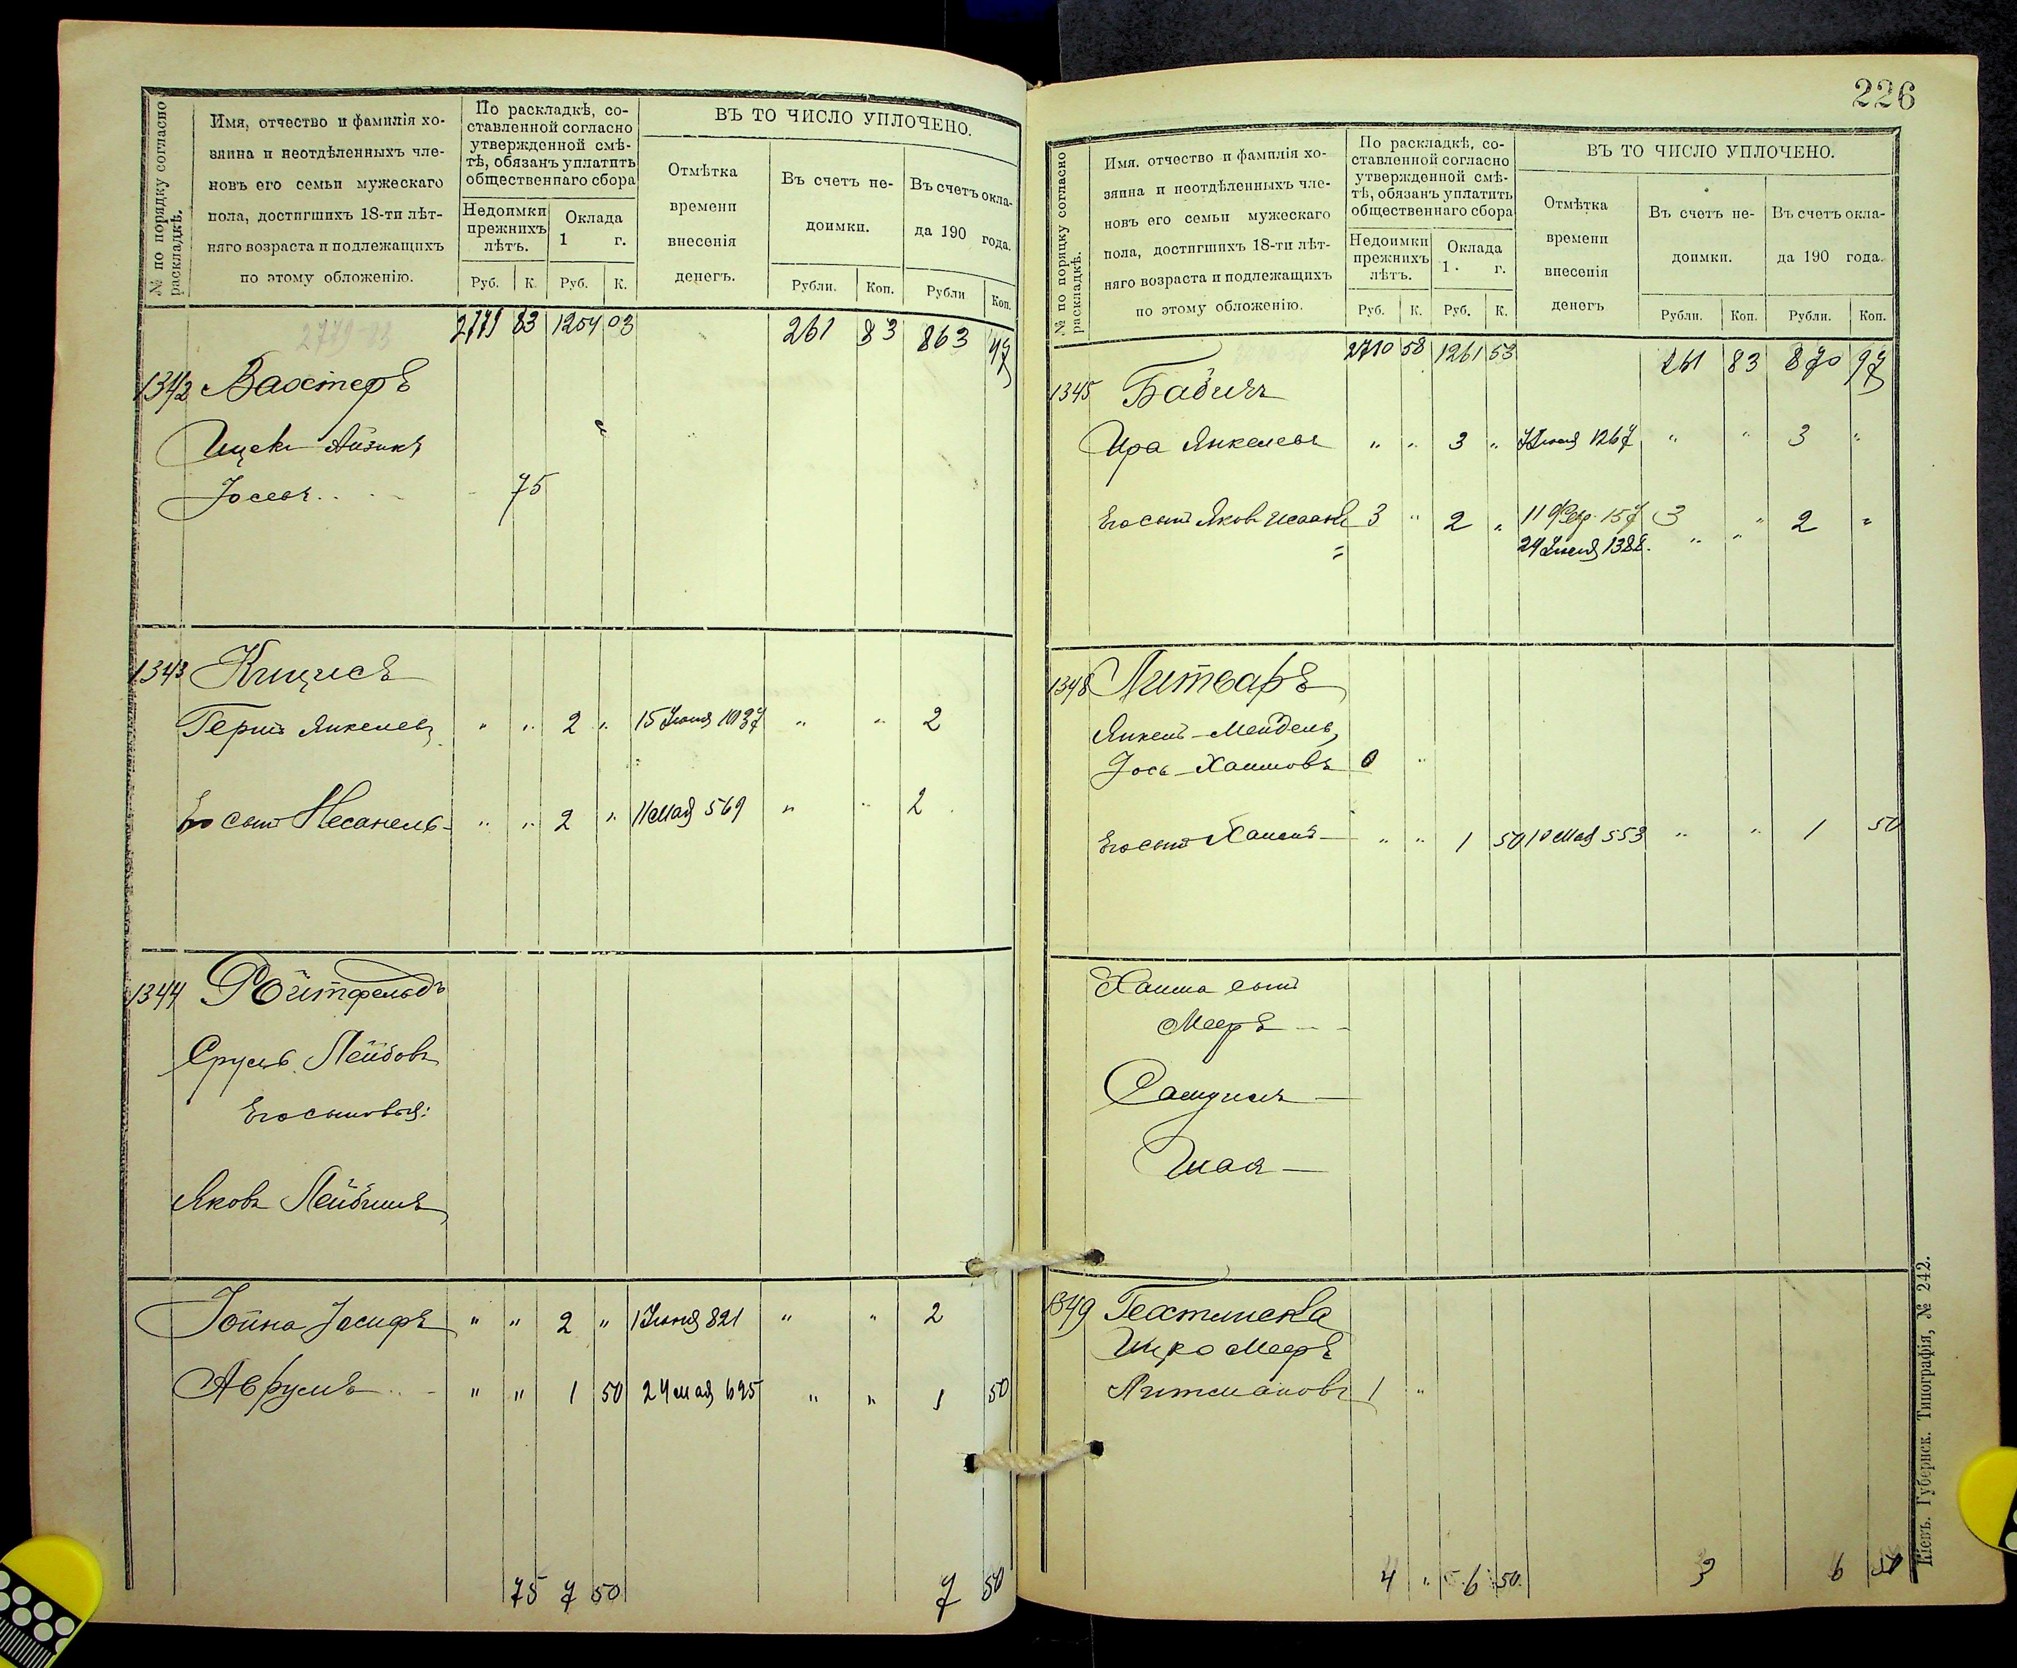 № по порядку согласно раскладкѣ.
Имя, отчество и фамилія хо-
зяина и неотдѣленныхъ чле-
новъ его семьи мужескаго
пола, достигшихъ 18-ти лѣт-
няго возраста и подлежащихъ
по этому обложенію.
По раскладкѣ, со-
ставленной согласно
утвержденной смѣ-
тѣ, обязанъ уплатить
общественнаго сбора
Недоимки прежнихъ лѣтъ.
Оклада 1 г.
Руб. К. Руб. К.
ВЪ ТО ЧИСЛО УПЛОЧЕНО.
Отмѣтка времени внесенія денегъ.
Въ счетъ не-
доимки.
Въ счетъ окла-
да 190 года.
Рубли. Коп. Рубли Коп.
2779 83 1254 03 261 83 863 47
1342 Вахтеръ
Ицек Айзикъ
Іосевъ 75
1343 Кицисъ
Гершъ Янкелевъ " " 2 " 15 Іюня 1037 " " 2
Его сынъ Несанель " " 2 " 11 Мая 569 " " 2
1344 Ройтфельдъ
Срулъ Лейбовъ
Его сыновья:
Яковъ Лейбишъ
Іойна Іосифъ " " 2 " 1 Іюня 821 " " 2
Аврумъ " " 1 50 24 мая 695 " " 1 50
75 7 50 7 50
226
№ по порядку согласно раскладкѣ.
Имя, отчество и фамилія хо-
зяина и неотдѣленныхъ чле-
новъ его семьи мужескаго
пола, достигшихъ 18-ти лѣт-
няго возраста и подлежащихъ
по этому обложенію.
По раскладкѣ, со-
ставленной согласно
утвержденной смѣ-
тѣ, обязанъ уплатить
общественнаго сбора
Недоимки прежнихъ лѣтъ.
Оклада 1 г.
Руб. К. Руб. К.
ВЪ ТО ЧИСЛО УПЛОЧЕНО.
Отмѣтка времени внесенія денегъ
Въ счетъ не-
доимки.
Въ счетъ окла-
да 190 года.
Рубли. Коп. Рубли. Коп.
2710 58 1261 53 261 83 870 97
1345 Бабичъ
Янкелевъ " " 3 " Іюня 1267 " " 3 "
Его сынъ Яковъ 3 " 2 " 11 Фев. 157 3 " 2 "
24 Іюня 1388. " "
1348 Литваръ
Янкель-Мендель,
Іось-Хаимовъ 0 "
Его сынъ Хаимъ " " 1 50 10 Мая 553 " " 1 50
Хаима сынъ
Мееръ
Самуилъ
Шая
1349
Мееръ
Литмановъ 1 "
4 " 6 50 3 6 50
Кіевъ. Губернск. Типографія, № 242.